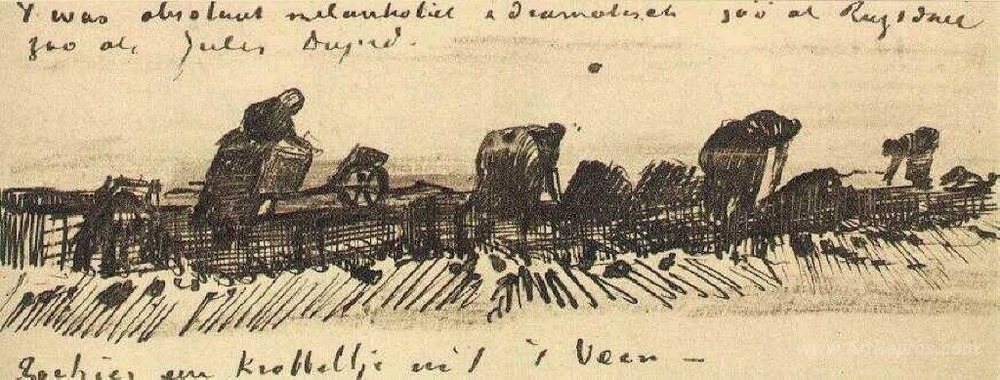 't was absoluut melankoliek & dramatisch zoo als Ruysdael
zoo als Jules Dupré.
Zoehier een krabbeltje uit 't Veen —